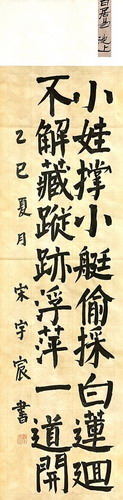 白居易 池上
小娃撑小艇偷採白蓮迴
不解藏蹤跡浮萍一道開
乙巳夏月 宋宇宸書